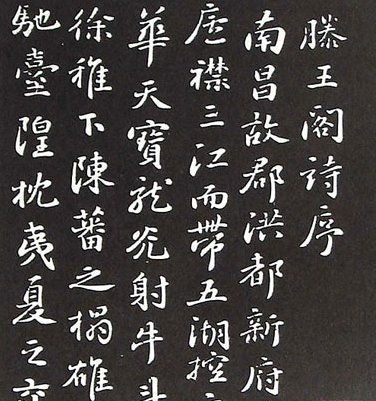 滕王閣詩序
南昌故郡洪都新府
廬襟三江而帶五湖控
華天寶龍光射牛斗
徐稚下陳蕃之榻雄
馳臺隍枕夷夏之交